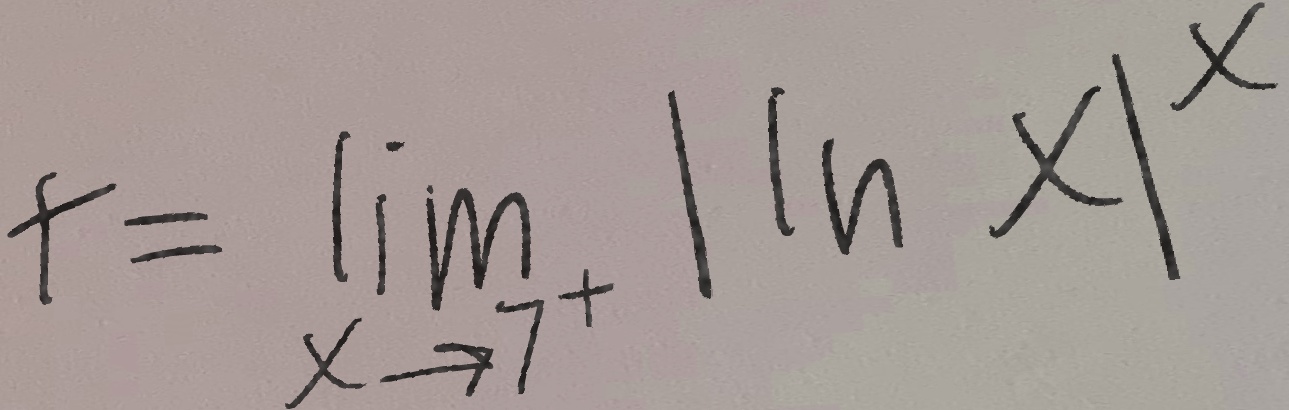 t = lim_{x→7^+} |ln x|^x